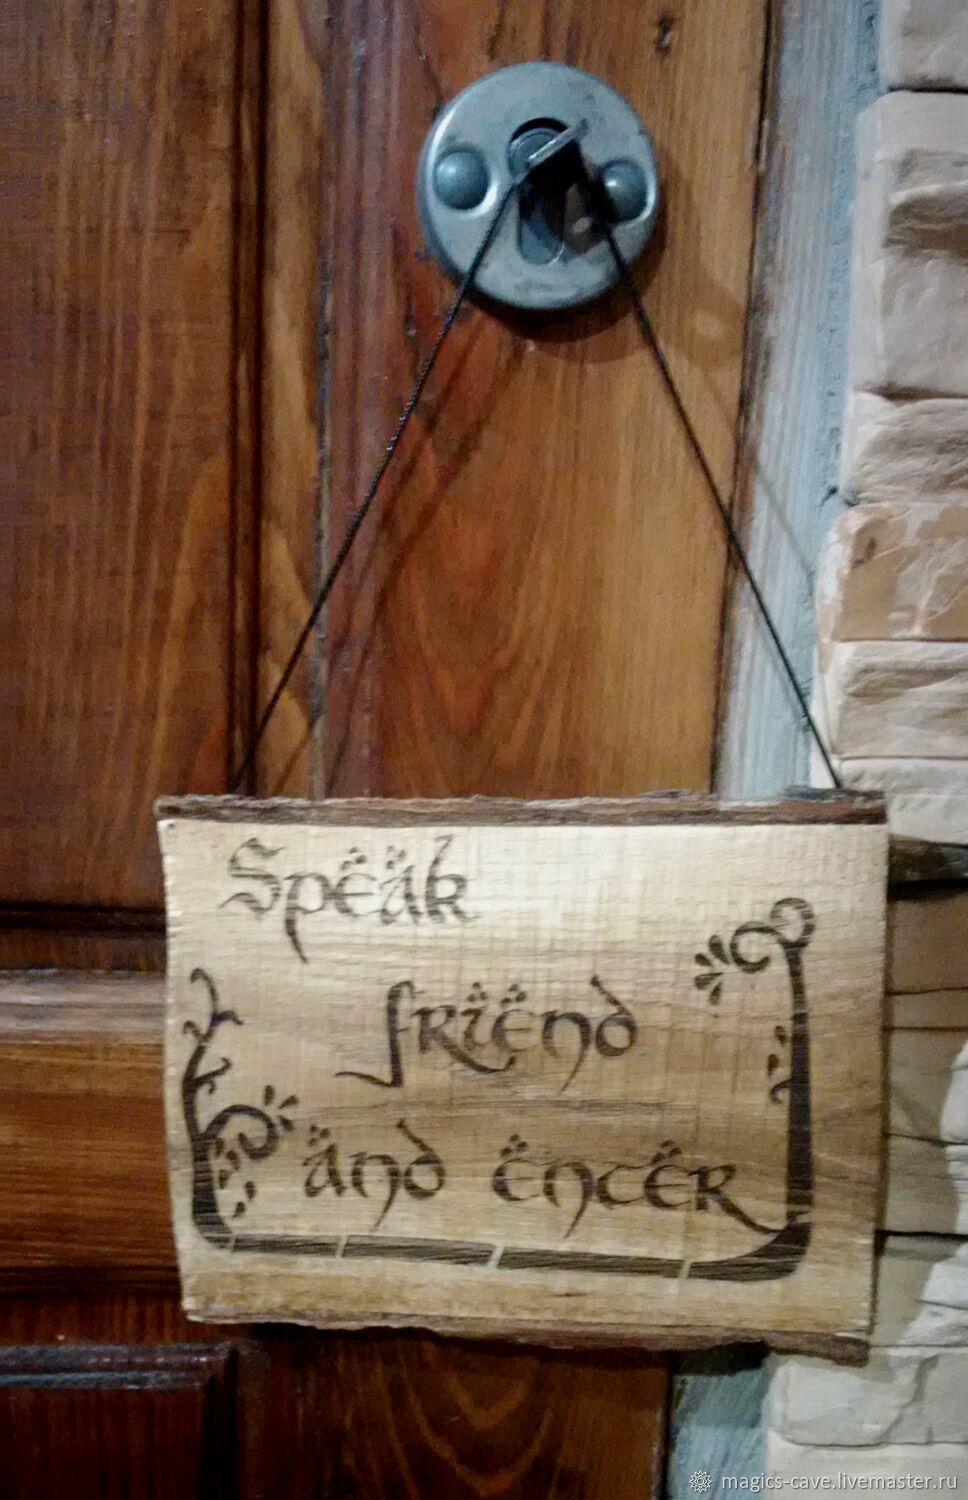 Speak
friend
and enter
magics-cave.livemaster.ru